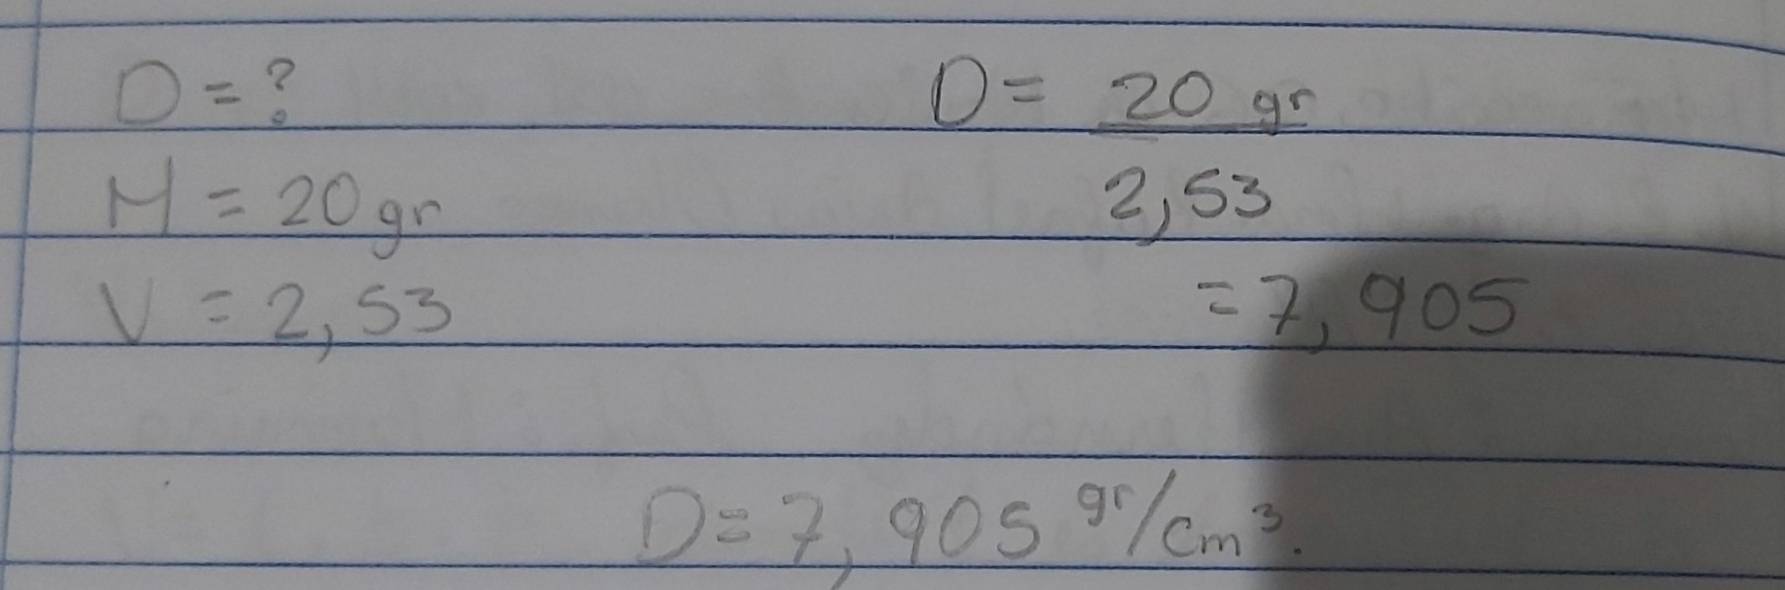 D = ?
M = 20 gr
V = 2,53
D = 20 gr
2,53
= 7,905
D = 7,905 gr/cm³.